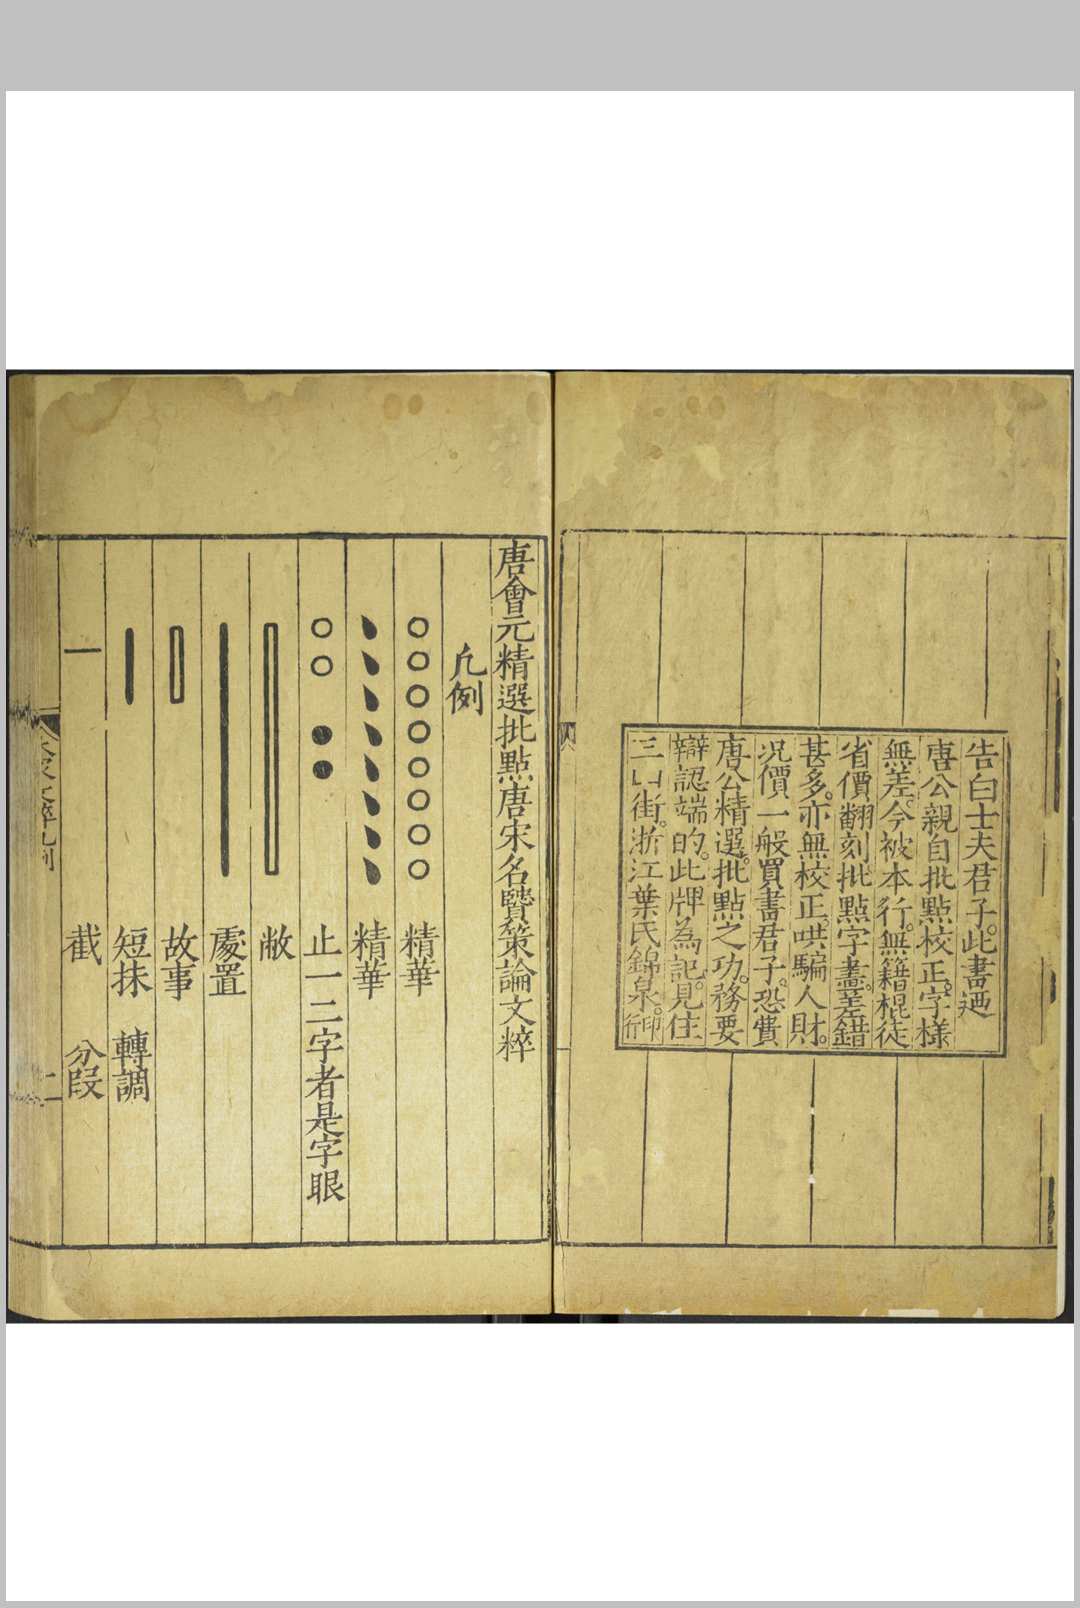 告白士夫君子。此書廼
唐公親自批點校正。字樣
無差。今被本行。無籍棍徒
省價翻刻。批點字畫。差錯
甚多。亦無校正。哄騙人財。
况價一般。買書君子。恐費
唐公精選。批點之功。務要
辯認端的。此牌為記。見住
三山街。浙江葉氏錦泉。印行
唐會元精選批點唐宋名賢策論文粹
凡例
○○○○○○○○ 精華
精華
○○ ●● 止一二字者是字眼
敝
處置
故事
短抹 轉調
一 截 分段
文粹凡例
二